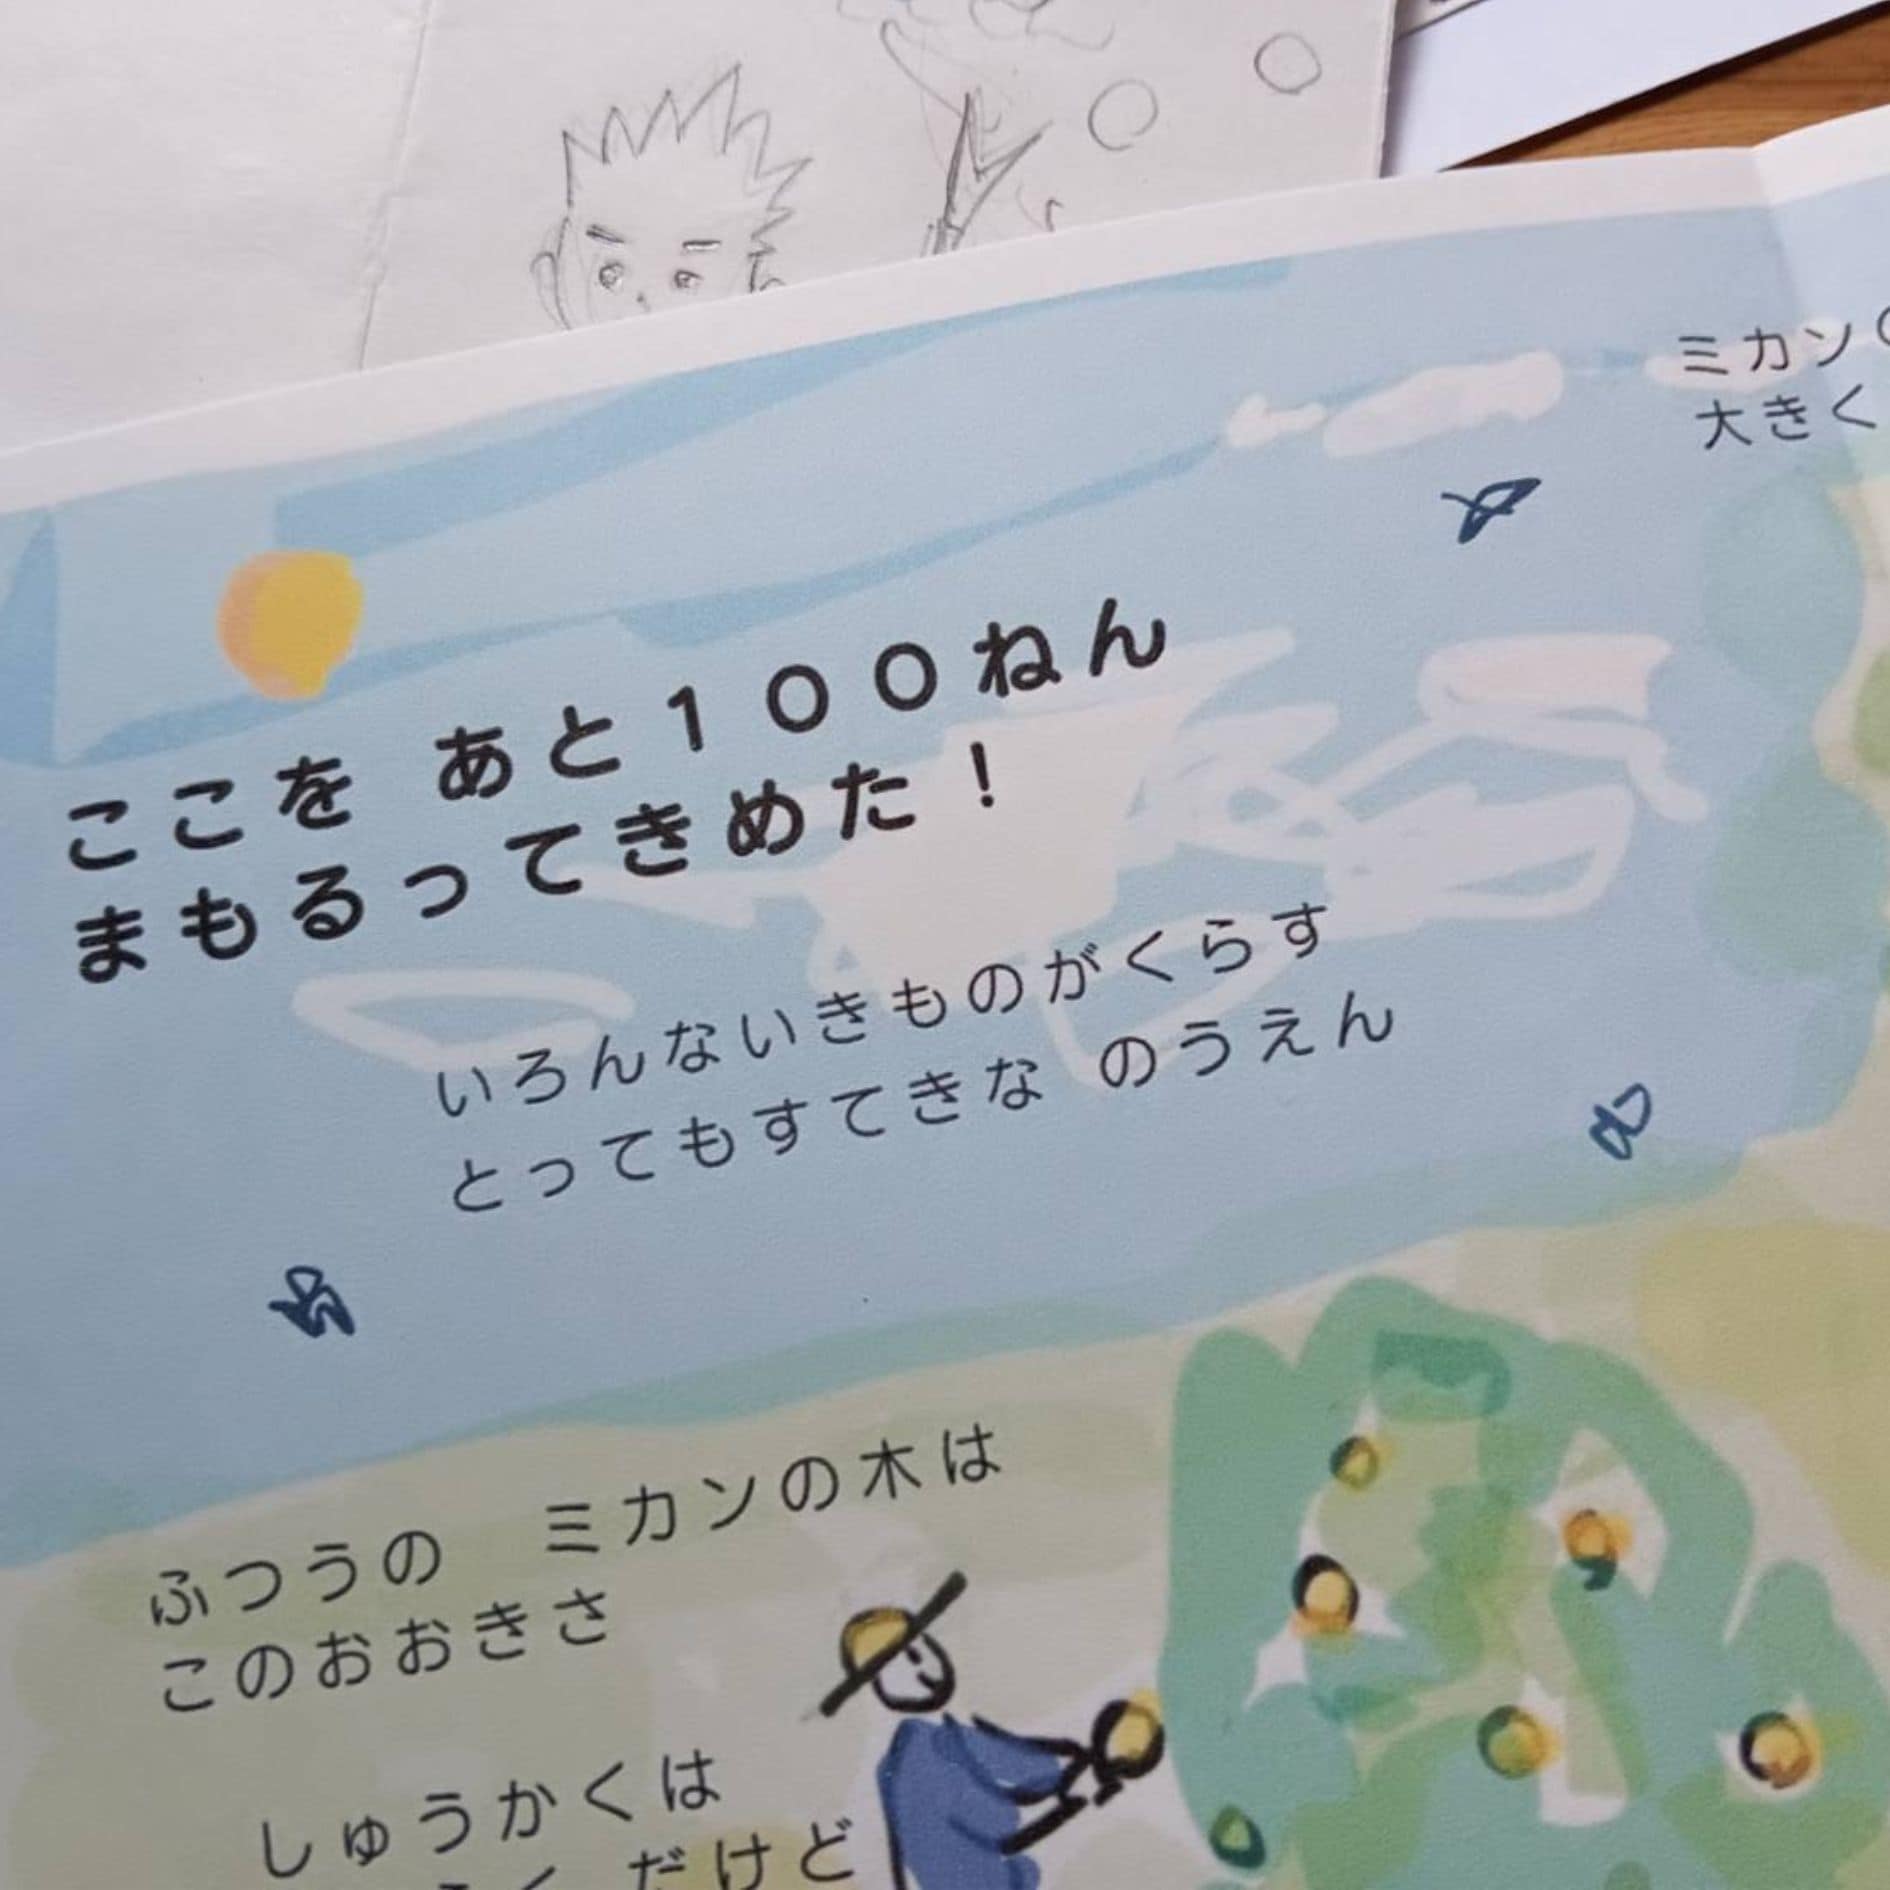 ここを あと１００ねん
まもるってきめた！
いろんないきものがくらす
とってもすてきな のうえん
ミカン
大きく
ふつうの　ミカンの木は
このおおきさ
しゅうかくは
だけど